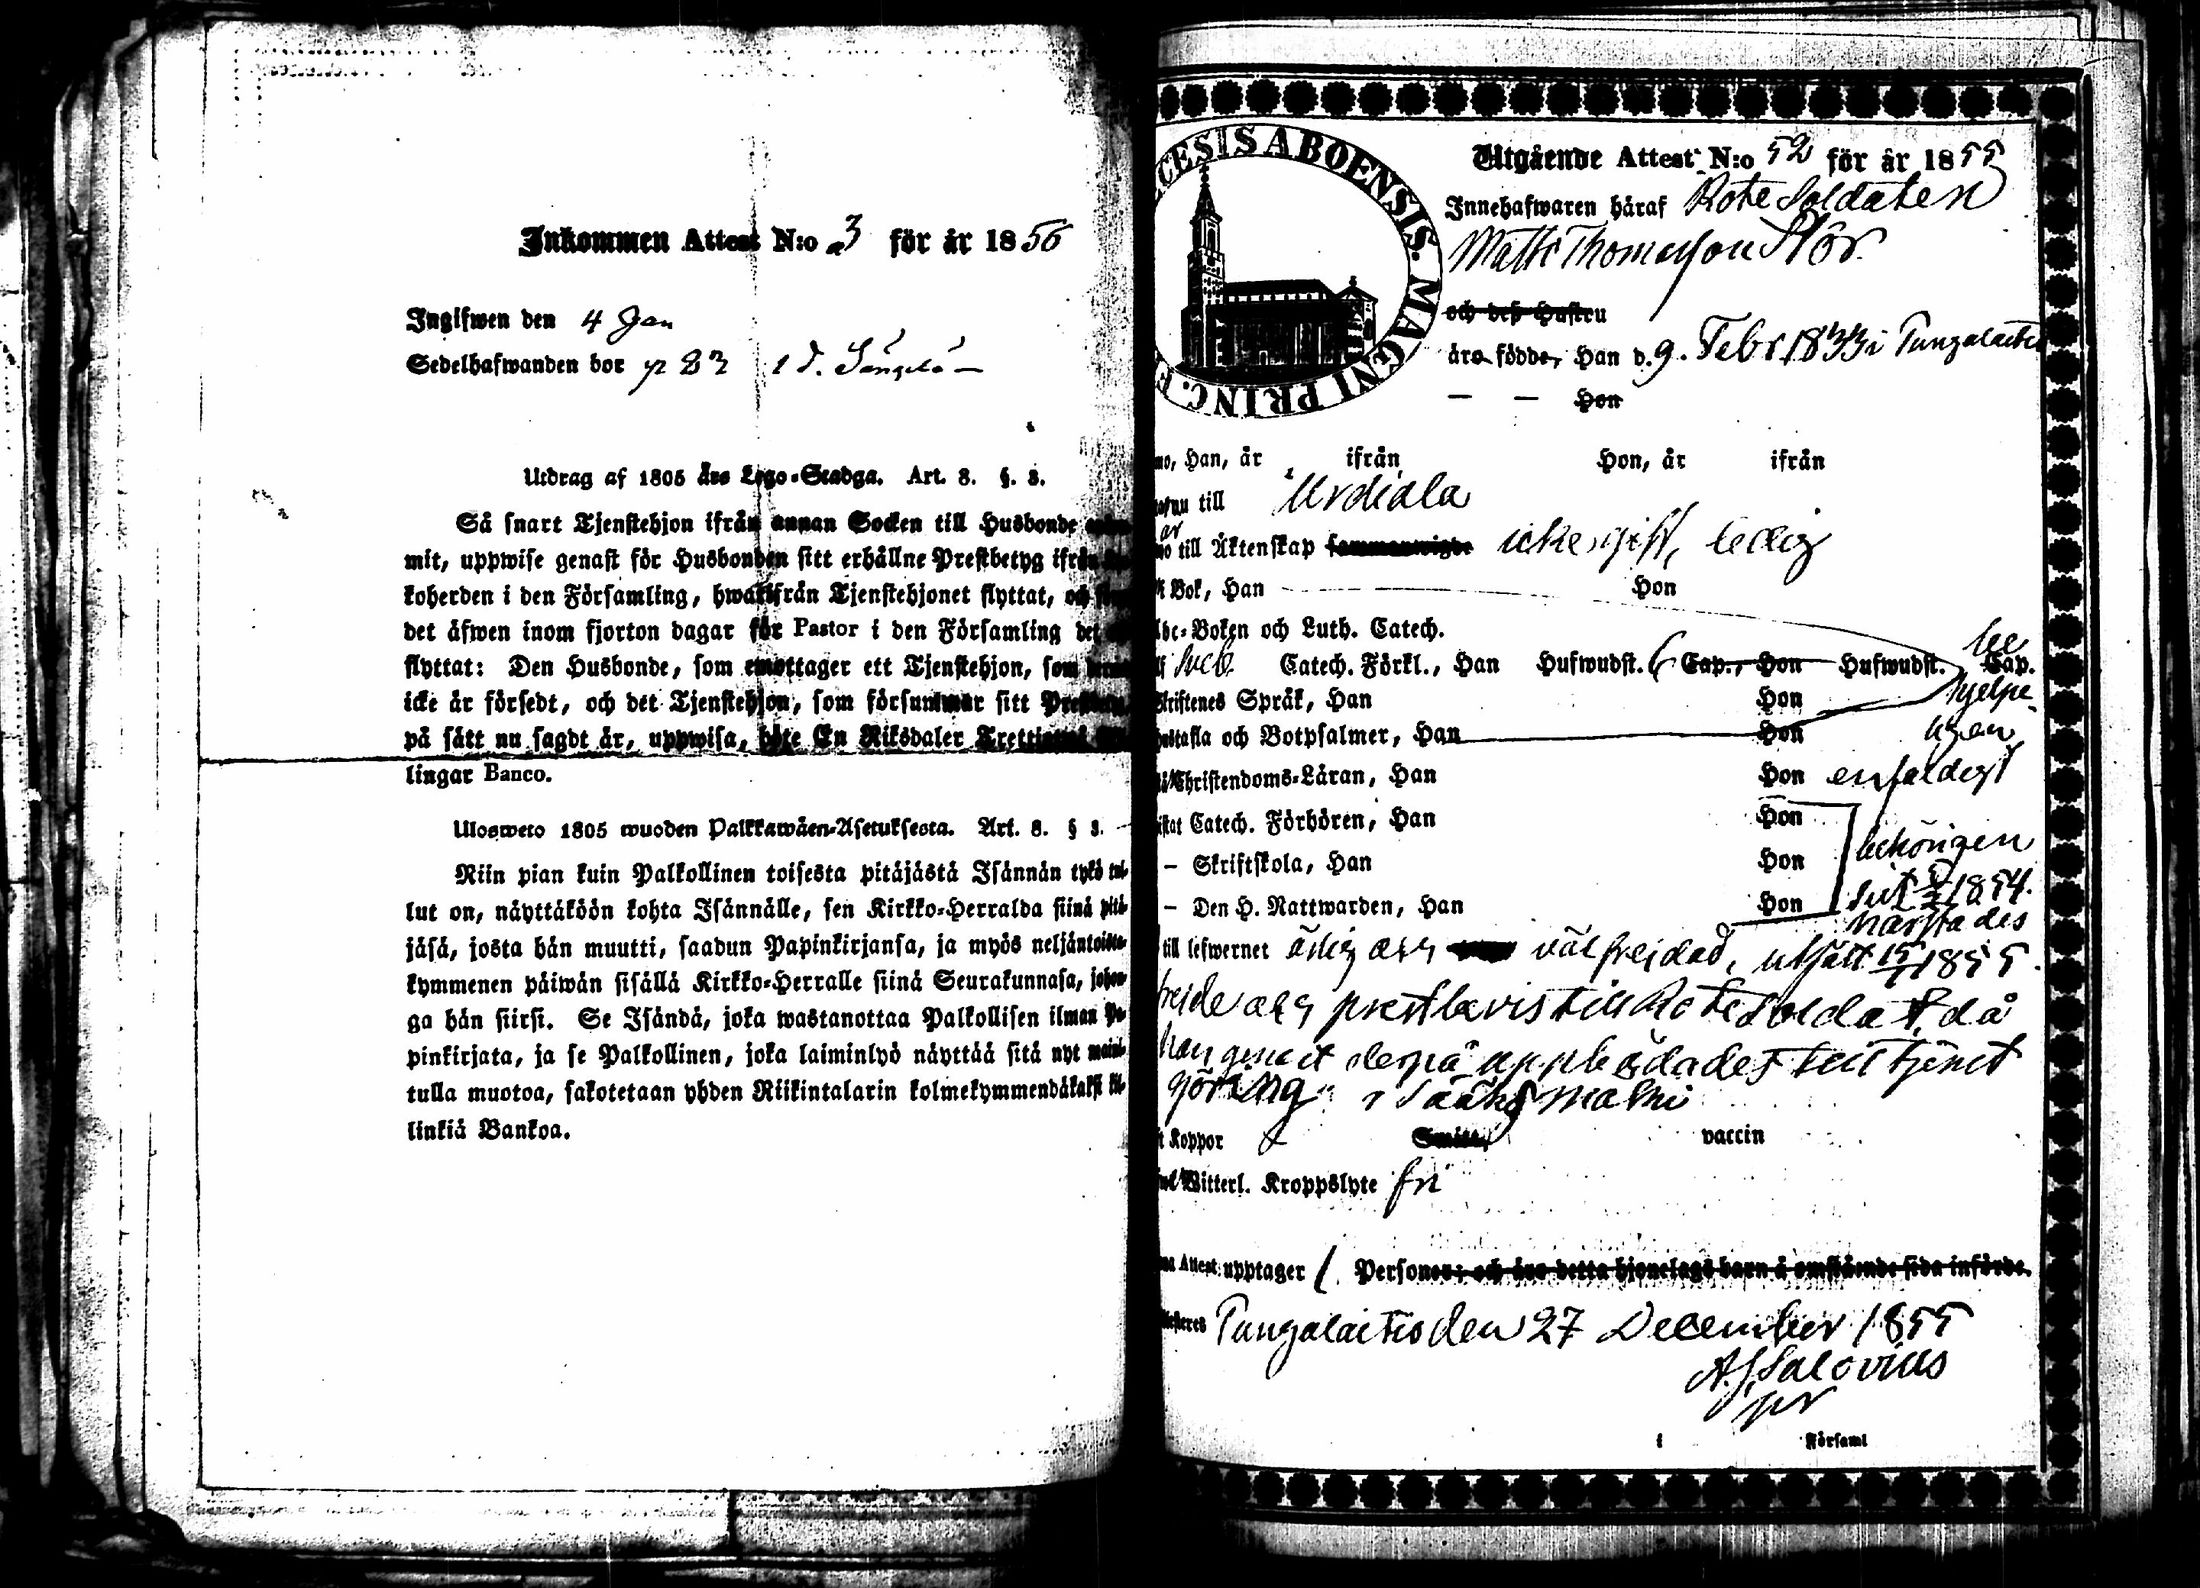 Inkommen Attest N:o 3 för år 1856
Ingifwen den 4 Jan
Sedelhafwanden bor
Utdrag af 1805 års Lego-Stadga. Art. 8. §. 3.
Så snart Tjenstehjon ifrån annan Socken till Husbonde
mit, uppwise genast för Husbonden sitt erhållne Prestbetyg ifrån
koherden i den Församling, hwarifrån Tjenstehjonet flyttat, och
det äfwen inom fjorton dagar för Pastor i den Församling det
flyttat: Den Husbonde, som emottager ett Tjenstehjon, som
icke är försedt, och det Tjenstehjon, som försummar sitt
på sätt nu sagdt är, uppwisa, böte En Riksdaler
lingar Banco.
Ulosweto 1805 wuoden Palkkawäen-Asetuksesta. Art. 8. § 3.
Niin pian kuin Palkollinen toisesta pitäjästä Isännän tykö tul-
lut on, näyttäköön kohta Isännälle, sen Kirkko-Herralda siinä pitä-
jäsä, josta hän muutti, saadun Papinkirjansa, ja myös neljäntoista-
kymmenen päiwän sisällä Kirkko-Herralle siinä Seurakunnasa, johon-
ga hän siirsi. Se Isändä, joka wastanottaa Palkollisen ilman Pa-
pinkirjata, ja se Palkollinen, joka laiminlyö näyttää sitä nyt maini-
tulla muotoa, sakotetaan yhden Riikintalarin kolmekymmendäkaksi kil-
linkiä Bankoa.
CESIS ABOENSIS. MAGNI PRINC. F
Utgående Attest N:o 52 för år 1855
Innehafwaren häraf Rote Soldaten
Matts Thomasson Stör.
och deß Hustru
äro födde, Han d. 9. Febr 1833 i Pungalaitio
— — Hon
no, Han, år ifrån Hon, år ifrån
nu till Urdiala
är
till Äktenskap icke gift, ledig
Bok, Han Hon
Abc-Boken och Luth. Catech.
Catech. Förkl., Han Hufwudst. 6 Cap., Hon Hufwudst. Cap.
Skriftenes Språk, Han Hon hjelpe-
hustafla och Botpsalmer, Han Hon ligen
Christendoms-Läran, Han Hon enfaldigt
Catech. Förhören, Han Hon
– Skriftskola, Han Hon behörigen
– Den H. Nattwarden, Han Hon 1854.
till lefwernet ärlig och väl frejdad, 1855
prestbevis till Rote Soldat, då
han till tjenst
göring i
Koppor vaccin
Witterl. Kroppslyte fri
Attest upptager 1 Personer: och äro detta hjonelags barn å omstående sida införde.
Pungalaitio den 27 December 1855
A. J. Salovius
i Församl